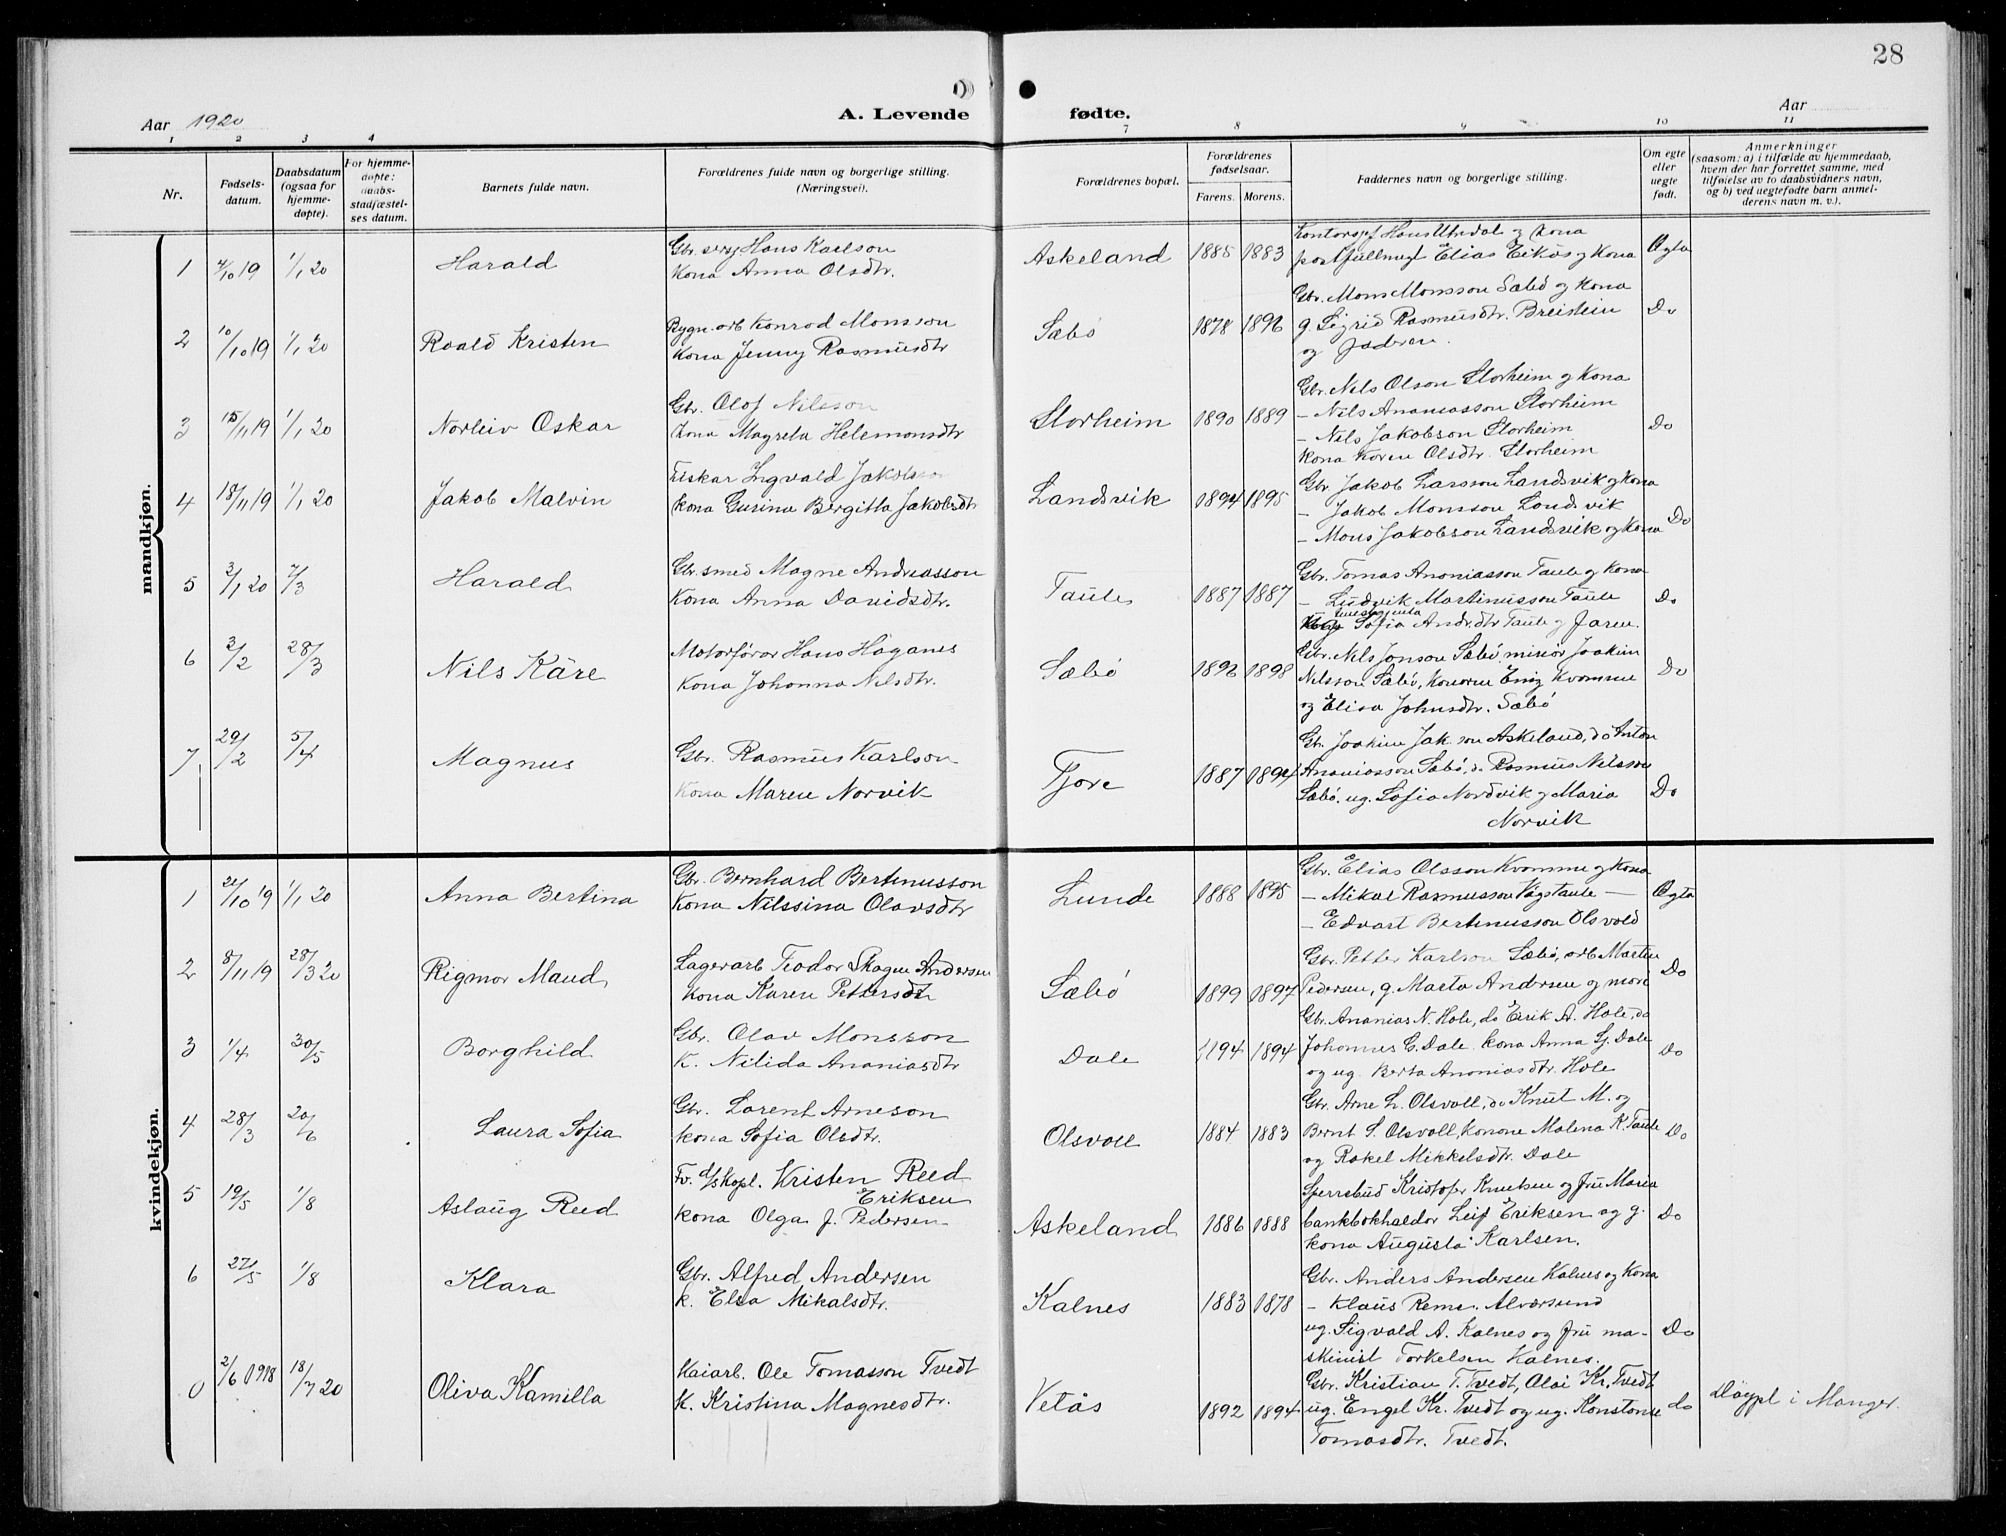 28
Aar 1920
A. Levende fødte.
Aar
1 2 3 4 7 8 9 10 11
Nr.
Fødsels-
datum.
Daabsdatum
(ogsaa for
hjemme-
døpte).
For hjemme-
døpte:
daabs-
stadfæstel-
ses datum.
Barnets fulde navn.
Forældrenes fulde navn og borgerlige stilling.
(Næringsvei).
Forældrenes bopæl.
Forældrenes
fødselsaar.
Farens. Morens.
Faddernes navn og borgerlige stilling.
Om egte
eller
uegte
født.
Anmerkninger
(saasom: a) i tilfælde av hjemmedaab,
hvem der har forrettet samme, med
tilføielse av to daabsvidners navn,
og b) ved uegtefødte barn anmel-
derens navn m. v.).
mandkjøn.
1 4/10 19 1/1 20 Harald
Gbr. serg. Hans Karlson
Kona Anna Olsdtr.
Askeland 1885 1883
Hans Urdal og Kona
Elias Eikås og Kona
Ogta
2 10/10 19 1/1 20 Roald Kristen
Bygn. arb Konrad Monsson
Kona Jenny Rasmusdtr
Sæbö 1878 1896
Gbr. Mons Monsson Sæbö og Kona
g. Sigrid Rasmusdtr. Breistein
og Faderen.
Do
3 15/11 19 1/1 20 Norleiv Oskar
Gbr. Olof Nilsson
Kona Magreta Helemonsdtr
Storheim 1890 1889
Gbr. Nils Olson Storheim og Kona
– Nils Ananiasson Storheim
– Nils Jakobson Storheim
Kona Karen Olsdtr. Storheim
Do
4 18/11 19 1/1 20 Jakob Malvin
Fiskar Ingvald Jakobsson
Kona Gurina Bergitta Jakobsdtr
Landsvik 1894 1895
Gbr. Jakob Larsson Landsvik og Kona
– Jakob Monsson Landsvik
– Mons Jakobson Landsvik og Kona
Do
5 2/1 20 7/3 Harald
Gbr. smed Magne Andreasson
Kona Anna Davidsdtr.
Taule 1887 1887
Gbr. Tomas Ananiasson Taule og Kona
– Ludvik Martinusson Taule
Sofia Andr.dtr Taule og Faren.
Do
6 2/2 28/3 Nils Kåre
Motorförar Hans Håganes
Kona Johanna Nilsdtr.
Sæbö 1896 1898
Gbr. Nils Jonson Sæbö, minör Joakim
Nilsson Sæbö, Konorne Enig Kvamme
og Elisa Johnsdtr. Sæbö
Do
7 29/2 5/4 Magnus
Gbr. Rasmus Karlson
Kona Maren Norvik
Fjore 1887 1894
Gbr. Joakim Jak.son Askeland, do Anton
Ananiasson Sæbö, do Rasmus Nilsson
Sæbö, ug. Sofia Nordvik og Maria
Norvik
Do
kvindekjøn.
1 21/10 19 1/1 20 Anna Bertina
Gbr. Bernhard Bertinusson
Kona Nilssina Olavsdtr
Lunde 1888 1895
Gbr. Elias Olsson Kvamme og Kona
– Mikal Rasmusson Vågstaule –
– Edvart Bertinusson Olsvold
Ogta
2 8/11 19 28/3 20 Rigmor Maud
Lagerarb Teodor Skagen Andersen
Kona Karen Pettersdtr
Sæbö 1899 1897
Gbr. Petter Karlson Sæbö, arb Martin
Pedersen, g. Marta Andersen og mori
Do
3 1/4 30/5 Borghild
Gbr. Olav Monsson
K. Nilida Ananiasdtr
Dale 1194 1894
Gbr. Ananias N. Hole, do Eirik A. Hole, do
Johannes C. Dale. Kona Anna Sj. Dale
og ug. Berta Ananiasdtr. Hole
Do
4 28/3 20/6 Laura Sofia
Gbr. Lorent Arneson
Kona Sofia Olsdtr.
Olsvoll 1884 1883
Gbr. Arne L. Olsvoll, do Knut M. og
Bernt S. Olsvoll, Konone Malena K. Taule
og Rakel Mikkelsdtr. Dale
Do
5 19/5 1/8 Aslaug Reed
Fv. d/skapt. Kristen Reed
Eriksen
Kona Olga J. Pedersen
Askeland 1886 1888
Sperrebud Kristofer Knutsen og fru Maria
bankbokhaldar Leif Eriksen og g.
Kona Augusta Karlsen.
Do
6 27/5 1/8 Klara
Gbr. Alfred Andersen
K. Elsa Mikalsdtr.
Kalnes 1883 1878
Gbr. Anders Andersen Kalnes og Kona
– Klaus Reme. Alversund
ug. Sigvald A. Kalnes og fru ma-
skinist Torkelsen Kalnes.
Do
0 2/6 1918 18/7 20 Oliva Kamilla
Kaiarb. Ole Tomasson Tvedt
K. Kristina Magnesdtr.
Vetås 1892 1894
Gbr. Kristian T. Tvedt, Olai Kr. Tvedt
ug. Engel Kr. Tvedt og ug. Konstanse
Tomasdtr. Tvedt.
do
Döypt i Manger.